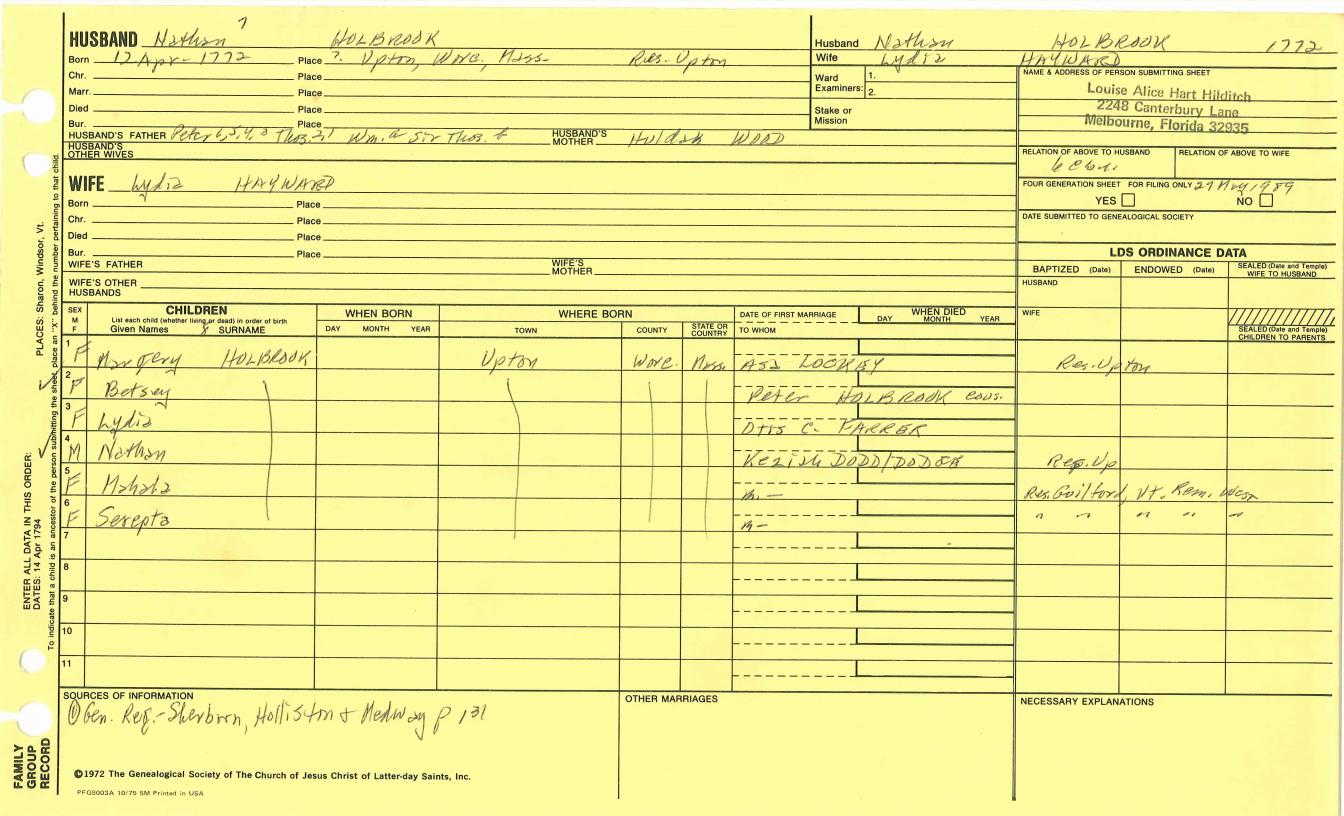 HUSBAND Nathan 7 HOLBROOK
Born 12 Apr- 1772 Place ?. Upton, Worc, Mass- Res. Upton
Chr. Place
Marr. Place
Died Place
Bur. Place
HUSBAND'S FATHER Peter 6,5,4,3 Thos.2,1 Wm.a Sir Thos. HUSBAND'S MOTHER Huldah WOOD
HUSBAND'S OTHER WIVES
Husband Nathan HOLBROOK 1772
Wife Lydia HAYWARD
Ward Examiners: 1.
2.
Stake or Mission
NAME & ADDRESS OF PERSON SUBMITTING SHEET
Louise Alice Hart Hilditch
2248 Canterbury Lane
Melbourne, Florida 32935
RELATION OF ABOVE TO HUSBAND RELATION OF ABOVE TO WIFE
FOUR GENERATION SHEET FOR FILING ONLY 27 Aug 1989
YES NO
DATE SUBMITTED TO GENEALOGICAL SOCIETY
WIFE Lydia HAYWARD
Born Place
Chr. Place
Died Place
Bur. Place
WIFE'S FATHER WIFE'S MOTHER
WIFE'S OTHER HUSBANDS
LDS ORDINANCE DATA
BAPTIZED (Date) ENDOWED (Date) SEALED (Date and Temple) WIFE TO HUSBAND
HUSBAND
WIFE
SEALED (Date and Temple) CHILDREN TO PARENTS
SEX M F
CHILDREN
List each child (whether living or dead) in order of birth
Given Names SURNAME
WHEN BORN
DAY MONTH YEAR
WHERE BORN
TOWN COUNTY STATE OR COUNTRY
DATE OF FIRST MARRIAGE
TO WHOM
WHEN DIED
DAY MONTH YEAR
1 F Margery HOLBROOK Upton Worc. Mass. Asa LOCKEY Res. Upton
2 F Betsey Peter HOLBROOK cous.
3 F Lydia Otis C. FARRER
4 M Nathan Keziah DODD/DODGE Res. Up
5 F Mahala m. — Res. Guilford, Vt. Rem. West
6 F Serepta m — " " " " "
7
8
9
10
11
SOURCES OF INFORMATION
① Gen. Reg.- Sherborn, Holliston & Medway p 131
OTHER MARRIAGES
NECESSARY EXPLANATIONS
©1972 The Genealogical Society of The Church of Jesus Christ of Latter-day Saints, Inc.
PFGS003A 10/75 5M Printed in USA
FAMILY GROUP RECORD
ENTER ALL DATA IN THIS ORDER:
DATES: 14 Apr 1794
PLACES: Sharon, Windsor, Vt.
To indicate that a child is an ancestor of the person submitting the sheet, place an "X" behind the number pertaining to that child.